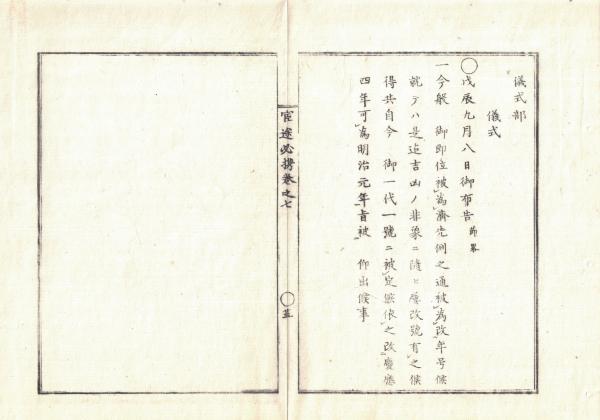 儀式部
儀式
○戊辰九月八日御布告 節畧
一今般 御即位被爲濟先例之通被爲改年号候
就テハ是迄吉凶ノ非象ニ隨ヒ屢改號有之候
得共自今 御一代一號ニ被定候依之改慶應
四年可爲明治元年旨被 仰出候事
官途必携巻之七
○ 五